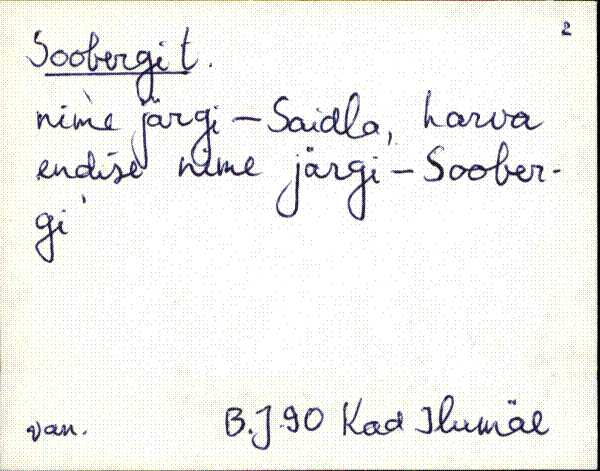 2
Soobergi t.
nime järgi – Saidla, harva
endise nime järgi – Soober-
gi
van. B.J.90 Kad Ilumäe